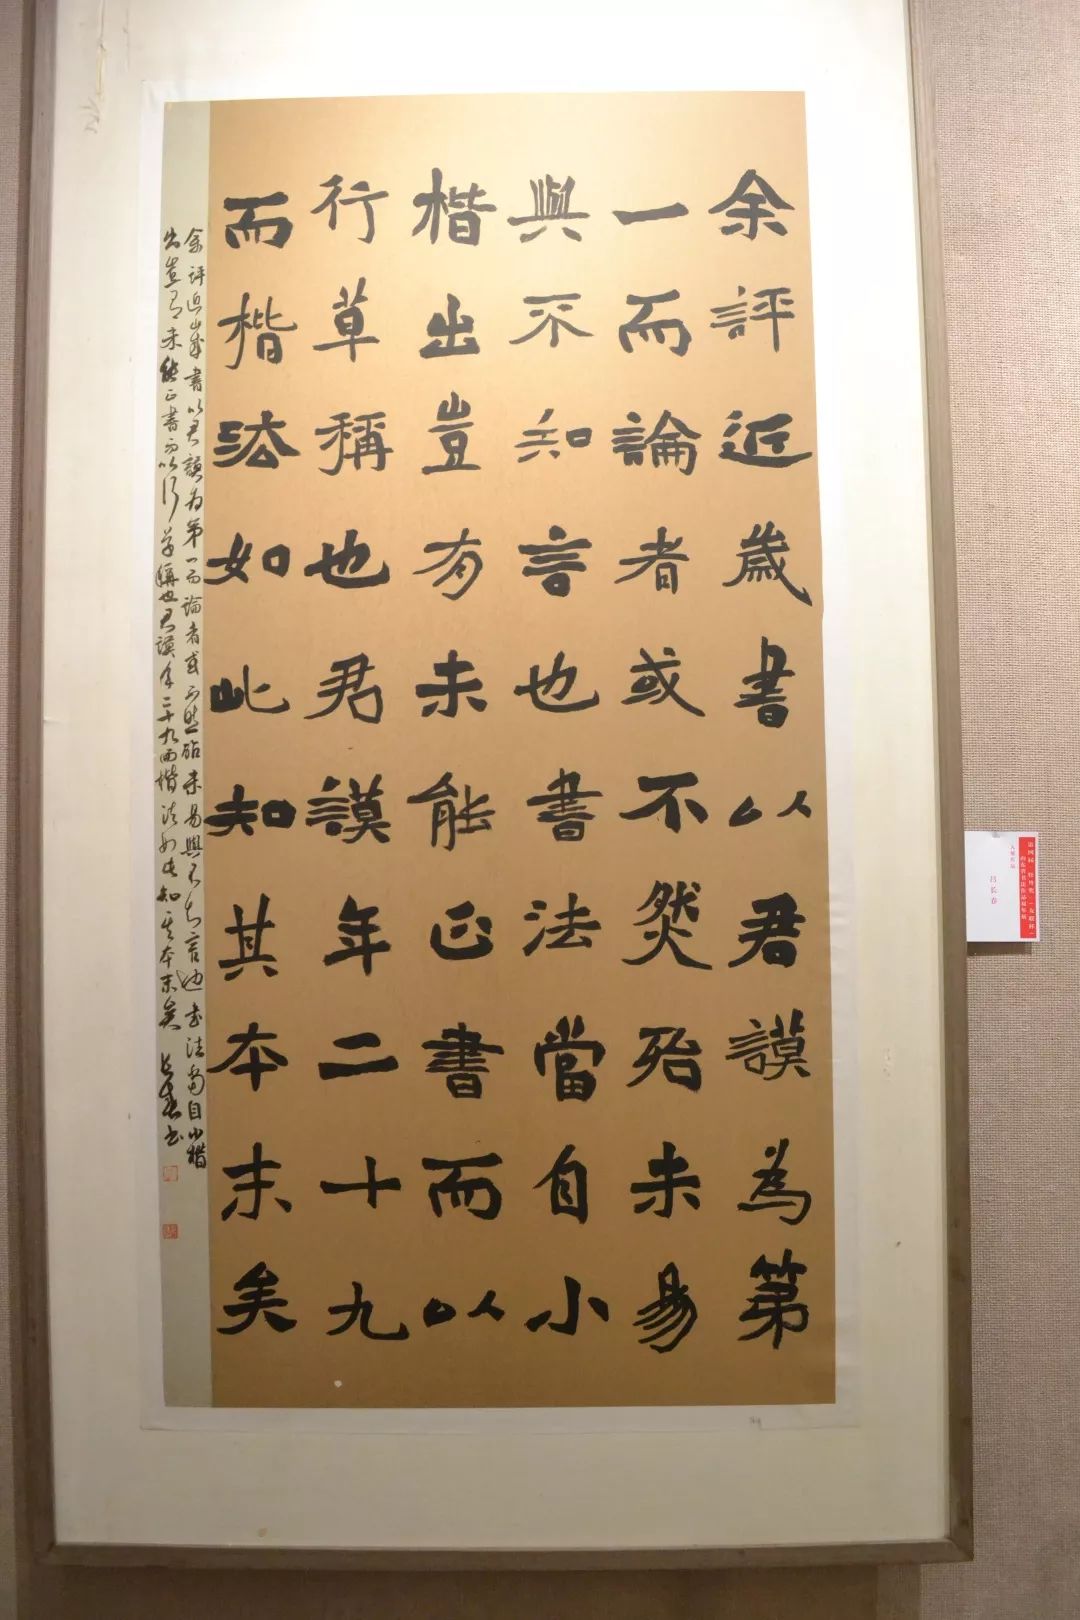 余評近歲書以君謨為第
一而論者或不然殆未易
與不知言也書法當自小
楷出豈有未能正書而以
行草稱也君謨年二十九
而楷法如此知其本末矣
余评近歲書以君謨为第一而論者或不然殆未易與不知言也書法當自小楷
出豈有未能正書而以行草稱也君謨年二十九而楷法如此知其本末矣 长春书
吕长春